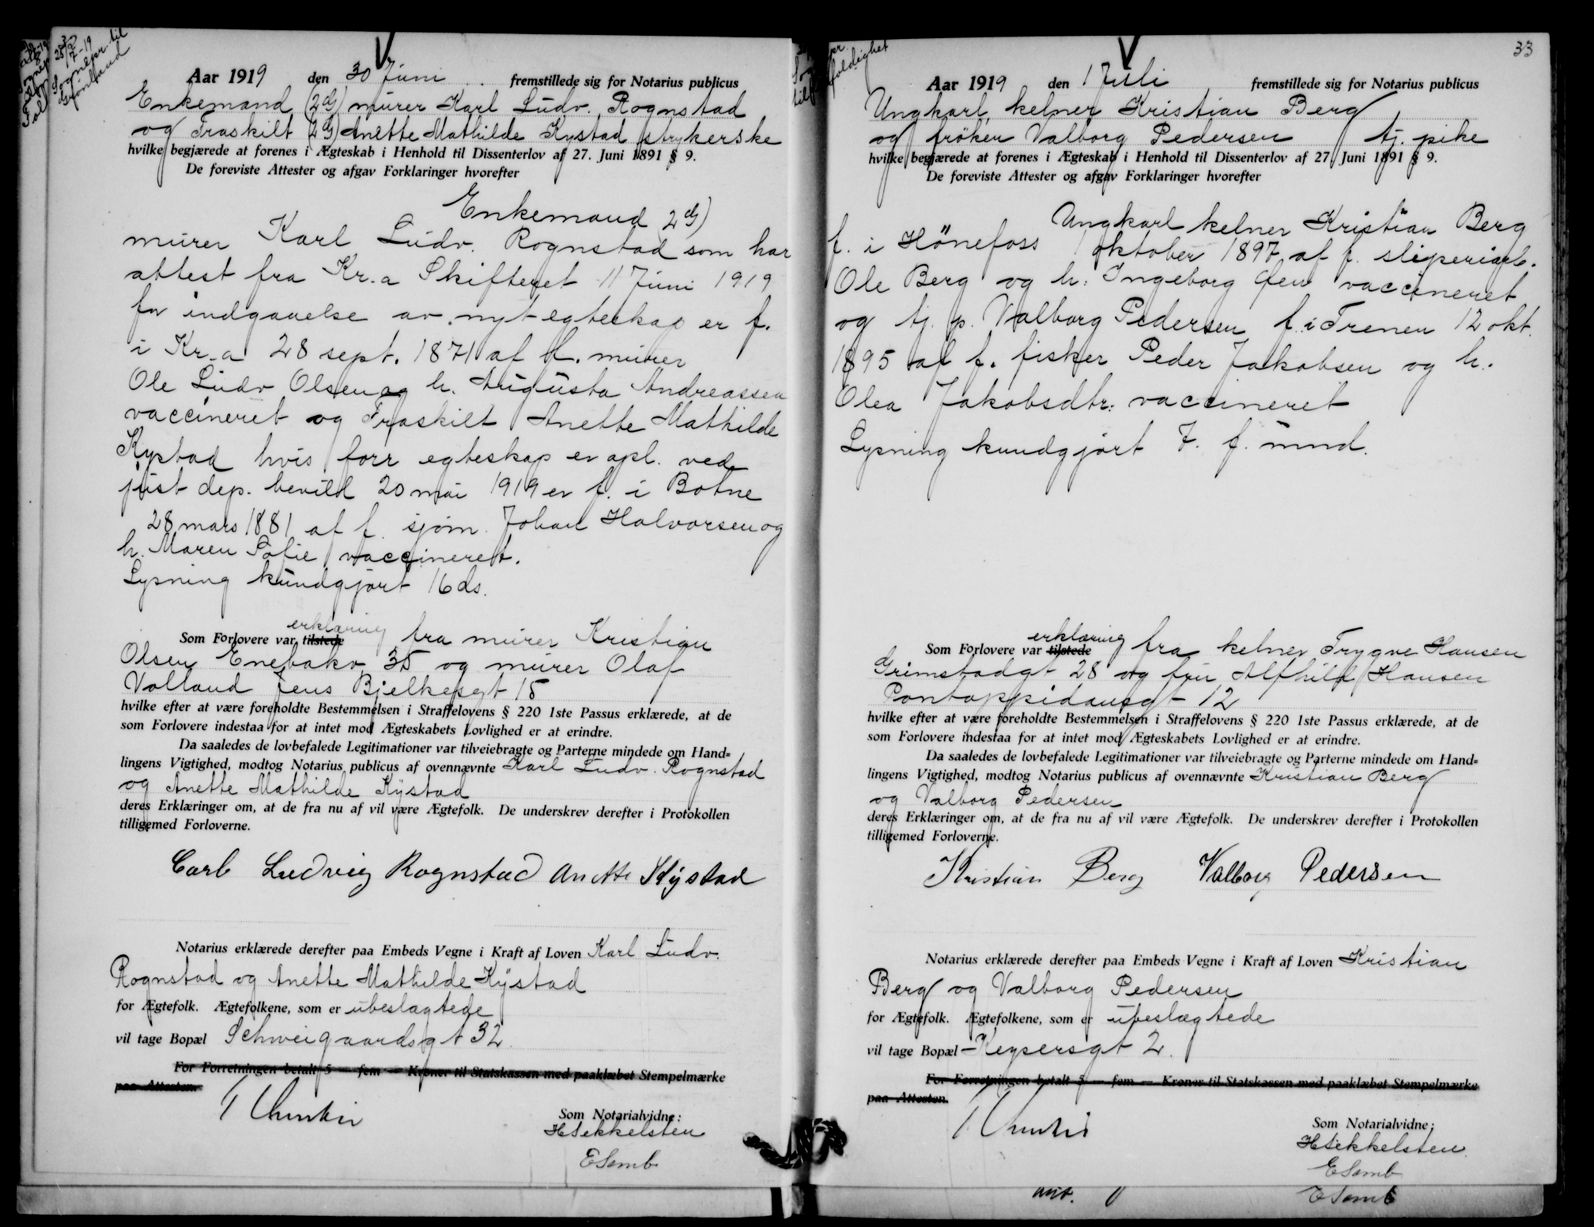 Aar 1919 den 30 Juni fremstillede sig for Notarius publicus
Enkemand (2dg) murer Karl Ludv. Rognstad
og Fraskilt (2dg) Anette Mathilde Kystad strykerske
hvilke begjærede at forenes i Ægteskab i Henhold til Dissenterlov af 27. Juni 1891 § 9.
De foreviste Attester og afgav Forklaringer hvorefter
Enkemand 2dg)
murer Karl Ludv. Rognstad som har
attest fra Kr.a Skifteret 11 Juni 1919
for indgaaelse av nyt egteskap er f.
i Kr.a 28 sept. 1871 af f. murer
Ole Ludv Olsen og h. Augusta Andreassen
vaccineret og Fraskilt Anette Mathilde
Kystad hvis forr egteskap er opl. ved
just dep. bevild 20 mai 1919 er f. i Botne
28 mars 1881 af f. sjøm. Johan Halvorsen og
h. Maren Sofie vaccineret.
Lysning kundgjort 16 ds.
erklæring
Som Forlovere var tilstede fra murer Kristian
Olsen Enebakv 35 og murer Olaf
Volland Jens Bjelkesgt 15
hvilke efter at være foreholdte Bestemmelsen i Straffelovens § 220 1ste Passus erklærede, at de
som Forlovere indestaa for at intet mod Ægteskabets Lovlighed er at erindre.
Da saaledes de lovbefalede Legitimationer var tilveiebragte og Parterne mindede om Hand-
lingens Vigtighed, modtog Notarius publicus af ovennævnte Karl Ludv. Rognstad
og Anette Mathilde Kystad
deres Erklæringer om, at de fra nu af vil være Ægtefolk. De underskrev derefter i Protokollen
tilligemed Forloverne.
Carl Ludvig Rognstad Anette Kystad
Notarius erklærede derefter paa Embeds Vegne i Kraft af Loven Karl Ludv.
Rognstad og Anette Mathilde Kystad
for Ægtefolk. Ægtefolkene, som er ubeslagtede
vil tage Bopæl Schweigaardsgt 32
For Forretningen betalt 5 — fem — Kroner til Statskassen med paaklæbet Stempelmærke
paa Attesten.
Som Notarialvidne:
H Sekkelsten
E Samb
33
Aar 1919 den 1 Juli fremstillede sig for Notarius publicus
Ungkarl kelner Kristian Berg
og frøken Valborg Pedersen tj. pike
hvilke begjærede at forenes i Ægteskab i Henhold til Dissenterlov af 27. Juni 1891 § 9.
De foreviste Attester og afgav Forklaringer hvorefter
Ungkarl kelner Kristian Berg
f. i Hönefoss 1 oktober 1897 af f. sliperiarb.
Ole Berg og h. Ingeborg vaccineret
og tj. p. Valborg Pedersen f. i Trenen 12 okt.
1895 af f. fisker Peder Jakobsen og h.
Olea Jakobsdtr. vaccineret
Lysning kundgjort 7. f. mnd.
erklæring
Som Forlovere var tilstede fra kelner Trygve Hansen
Grimstadgt 28 og fru Alfhild Hansen
Pontoppidansgt 12
hvilke efter at være foreholdte Bestemmelsen i Straffelovens § 220 1ste Passus erklærede, at de
som Forlovere indestaa for at intet mod Ægteskabets Lovlighed er at erindre.
Da saaledes de lovbefalede Legitimationer var tilveiebragte og Parterne mindede om Hand-
lingens Vigtighed, modtog Notarius publicus af ovennævnte Kristian Berg
og Valborg Pedersen
deres Erklæringer om, at de fra nu af vil være Ægtefolk. De underskrev derefter i Protokollen
tilligemed Forloverne.
Kristian Berg Valborg Pedersen
Notarius erklærede derefter paa Embeds Vegne i Kraft af Loven Kristian
Berg og Valborg Pedersen
for Ægtefolk. Ægtefolkene, som er ubeslægtede
vil tage Bopæl Keysersgt 2.
For Forretningen betalt 5 — fem — Kroner til Statskassen med paaklæbet Stempelmærke
paa Attesten.
Som Notarialvidne:
H Sekkelsten
E Samb
E Samb